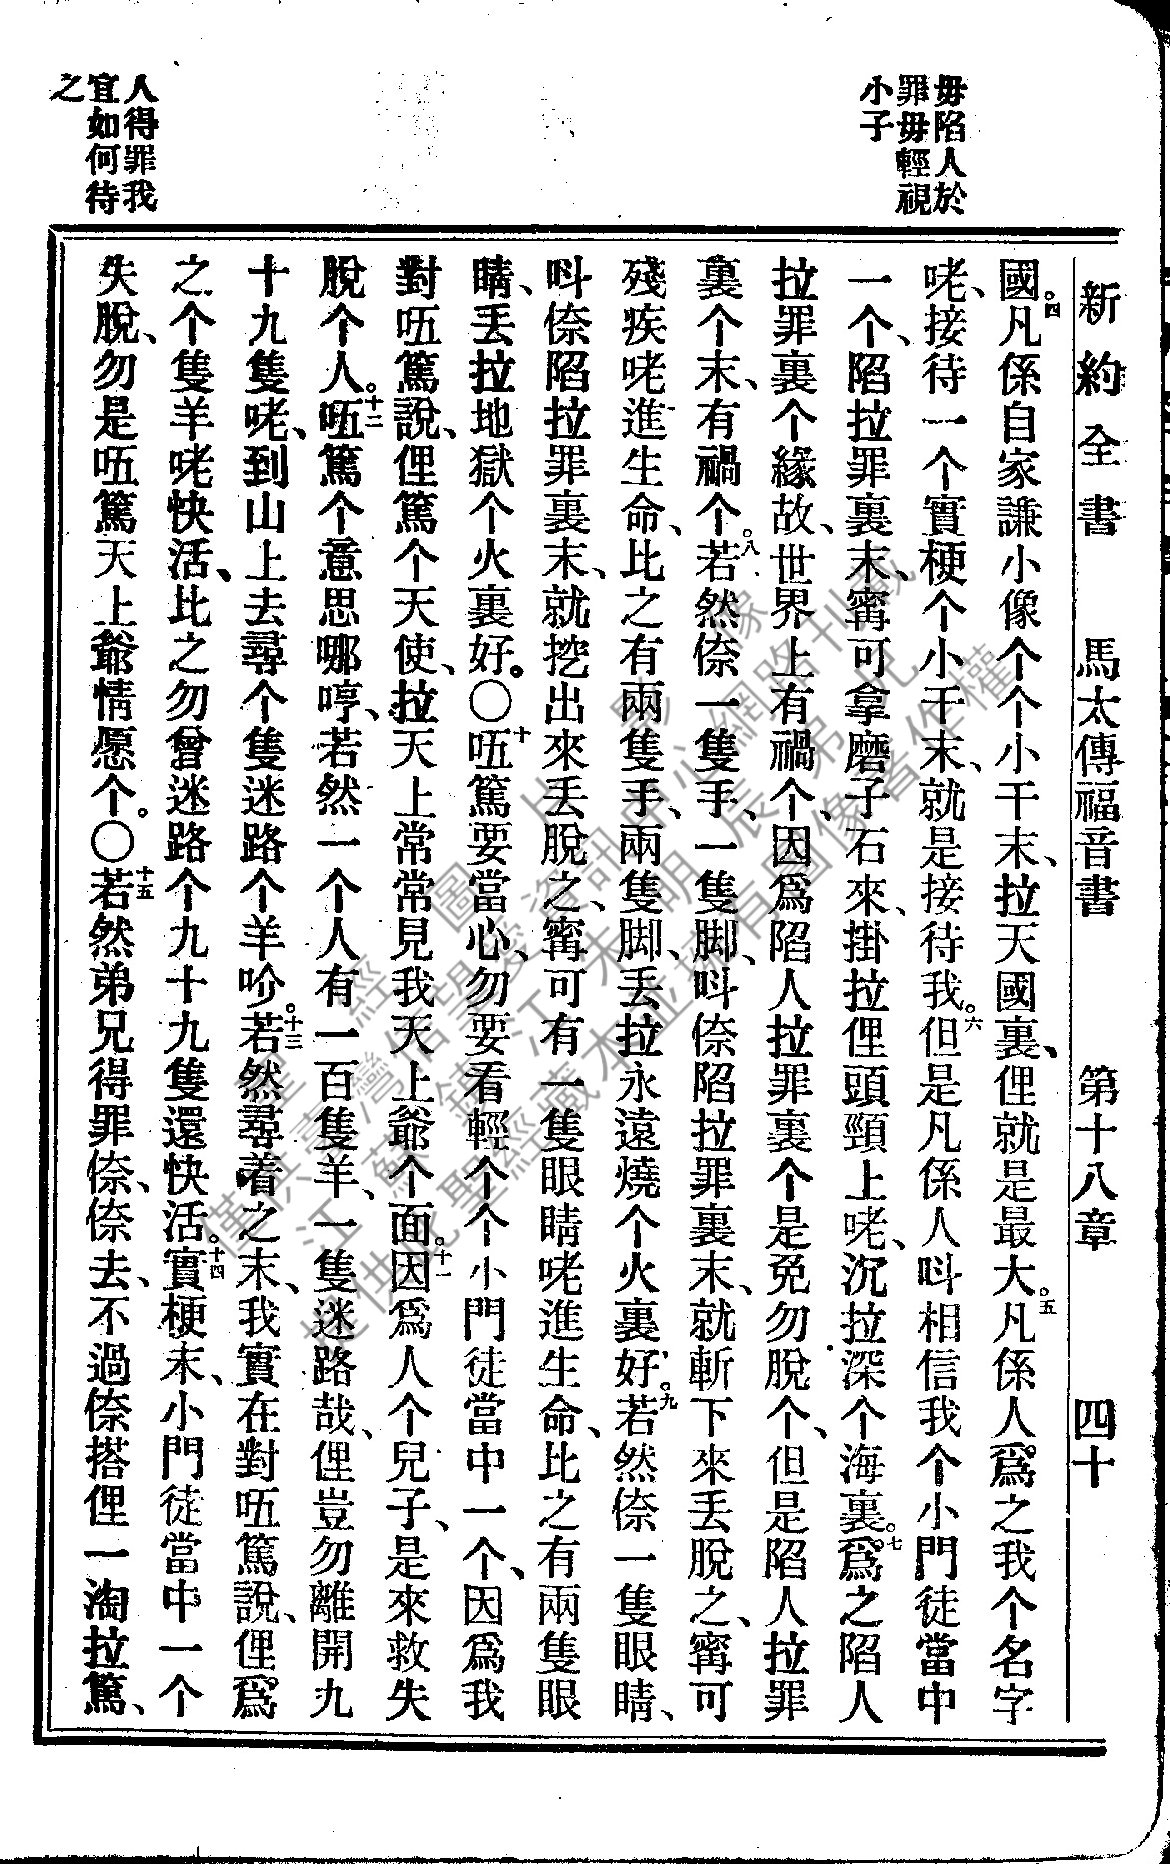 新約全書 馬太傳福音書 第十八章 四十
毋陷人於
罪毋輕視
小子
國。四凡係自家謙小像个个小干末、拉天國裏、俚就是最大。五凡係人爲之我个名字
咾、接待一个實梗个小干末、就是接待我。六但是凡係人呌相信我个小門徒當中
一个、陷拉罪裏末、寗可拿磨子石來、掛拉俚頭頸上咾、沉拉深个海裏。七爲之陷人
拉罪裏个緣故、世界上有禍个、因爲陷人拉罪裏个是免勿脫个、但是陷人拉罪
裏个末、有禍个。八若然倷一隻手、一隻脚、呌倷陷拉罪裏末、就斬下來丟脫之、寗可
殘疾咾進生命、比之有兩隻手、兩隻脚、丟拉永遠燒个火裏好。九若然倷一隻眼睛、
呌倷陷拉罪裏末、就挖出來丟脫之、寗可有一隻眼睛咾進生命、比之有兩隻眼
睛、丟拉地獄个火裏好。〇十唔篤要當心、勿要看輕个个小門徒當中一个、因爲我
對唔篤說、俚篤个天使、拉天上常常見我天上爺个面。十一因爲人个兒子、是來救失
脫个人。十二唔篤个意思哪哼、若然一个人有一百隻羊、一隻迷路哉、俚豈勿離開九
十九隻咾、到山上去尋个隻迷路个羊吤。十三若然尋着之末、我實在對唔篤說、俚爲
之个隻羊咾快活、比之勿曾迷路个九十九隻還快活。十四實梗末、小門徒當中一个
失脫、勿是唔篤天上爺情愿个。〇十五若然弟兄得罪倷、倷去、不過倷搭俚一淘拉篤、
人得罪我
宜如何待
之
聖經圖片影像
僅供臺灣信望愛資訊中心網路刊載
江蘇鎮江朱明辰弟兄
提供此聖經藏本並擁有圖像著作權